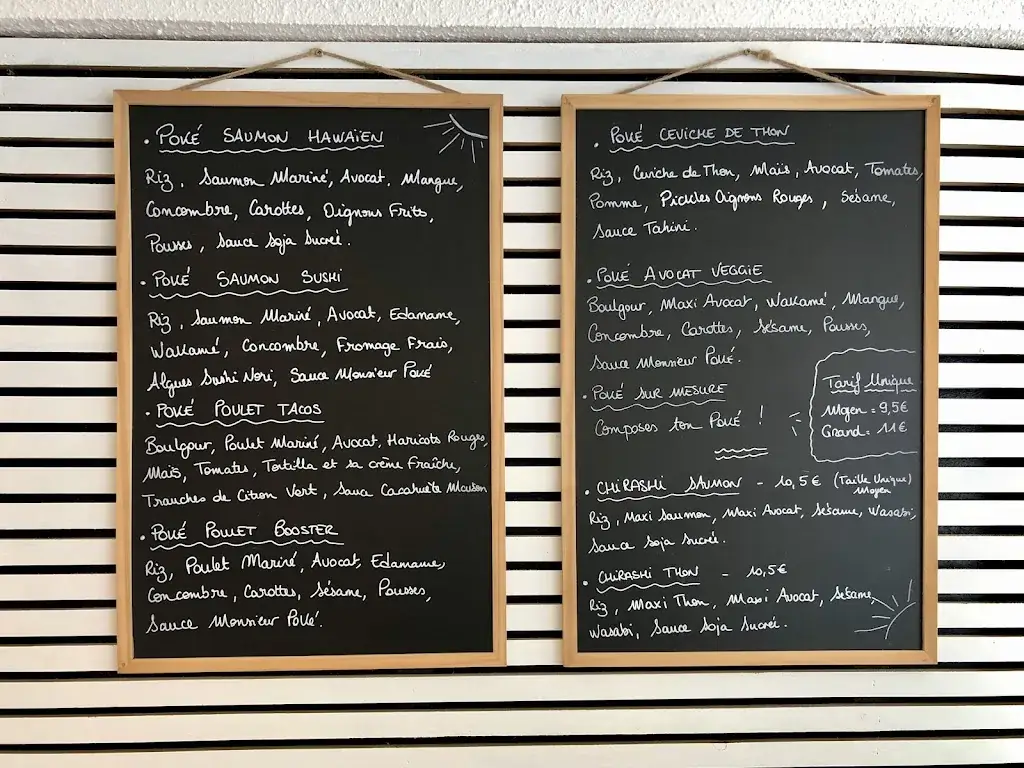 • POKÉ SAUMON HAWAÏEN
Riz, Saumon Mariné, Avocat, Mangue,
Concombre, Carottes, Oignons Frits,
Pousses, Sauce Soja Sucrée.
• POKÉ SAUMON SUSHI
Riz, Saumon Mariné, Avocat, Edamame,
Wakamé, Concombre, Fromage Frais,
Algues Sushi Nori, Sauce Monsieur Poké
• POKÉ POULET TACOS
Boulgour, Poulet Mariné, Avocat, Haricots Rouges,
Maïs, Tomates, Tortilla et sa crème Fraîche,
Tranches de Citron Vert, Sauce Cacahuète Maison
• POKÉ POULET BOOSTER
Riz, Poulet Mariné, Avocat, Edamame,
Concombre, Carottes, Sésame, Pousses,
Sauce Monsieur Poké.
• POKÉ CEVICHE DE THON
Riz, Ceviche de Thon, Maïs, Avocat, Tomates,
Pomme, Pickles Oignons Rouges, Sésame,
Sauce Tahini.
• POKÉ AVOCAT VEGGIE
Boulgour, Maxi Avocat, Wakamé, Mangue,
Concombre, Carottes, Sésame, Pousses,
Sauce Monsieur Poké.
• POKÉ SUR MESURE
Composes ton Poké !
Tarif Unique
Moyen = 9,5€
Grand = 11€
• CHIRASHI SAUMON - 10,5€ (Taille Unique)
Moyen
Riz, Maxi Saumon, Maxi Avocat, Sésame, Wasabi,
Sauce Soja Sucrée.
• CHIRASHI THON - 10,5€
Riz, Maxi Thon, Maxi Avocat, Sésame,
Wasabi, Sauce Soja Sucrée.